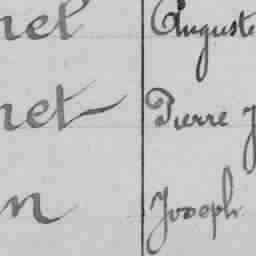 nel Auguste
net Pierre J
n Joseph